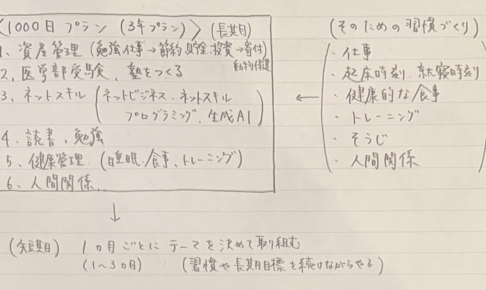 〈1000日プラン (3年プラン)〉 (長期目)
1、資産管理 (勉強仕事→節約、貯金、投資→寄付)
2、医学部受験、塾をつくる
3、ネットスキル (ネットビジネス、ネットスキル
プログラミング、生成AI)
4、読書、勉強
5、健康管理 (睡眠、食事、トレーニング)
6、人間関係
(そのための習慣づくり)
・仕事
・起床時刻、就寝時刻
・健康的な食事
・トレーニング
・そうじ
・人間関係
←
↓
(短期目) 1ヵ月ごとにテーマを決めて取り組む
(1〜3ヵ月) (習慣や長期目標を続けながらやる)